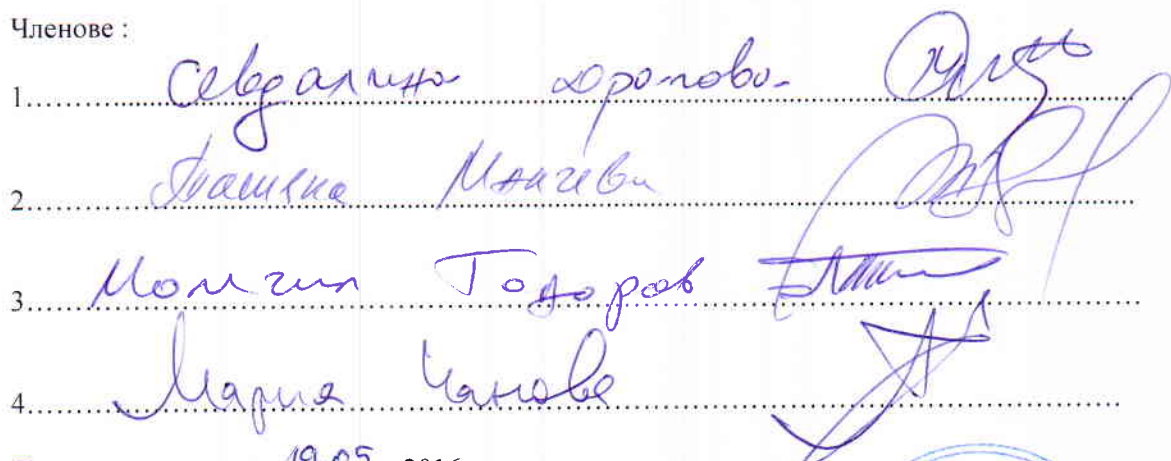 Членове :
1. Севдалина
2. Манчева
3. Момчил Тодоров
4. Мария Чанова
19.05. 2016